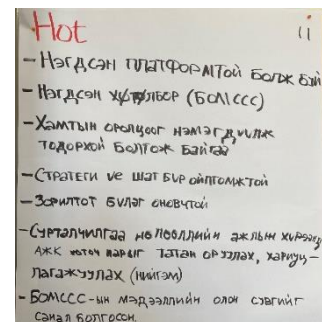 Hot ii
- Нэгдсэн платформтой болж бай
- Нэгдсэн хөтөлбөр (БОМССС)
- Хамтын оролцоог нэмэгдүүлж
тодорхой болгож байгаа
- Стратеги үе шат бүр ойлгомжтой
- Зорилтот бүлэг оновчтой
- Сурталчилгаа нөлөөллийн ажлын хүрээнд
АЖК татан оруулах, хариуц-
лагажуулах (нийгэм)
- БОМССС-ын мэдээллийн олон сувгийг
санал болгосон.